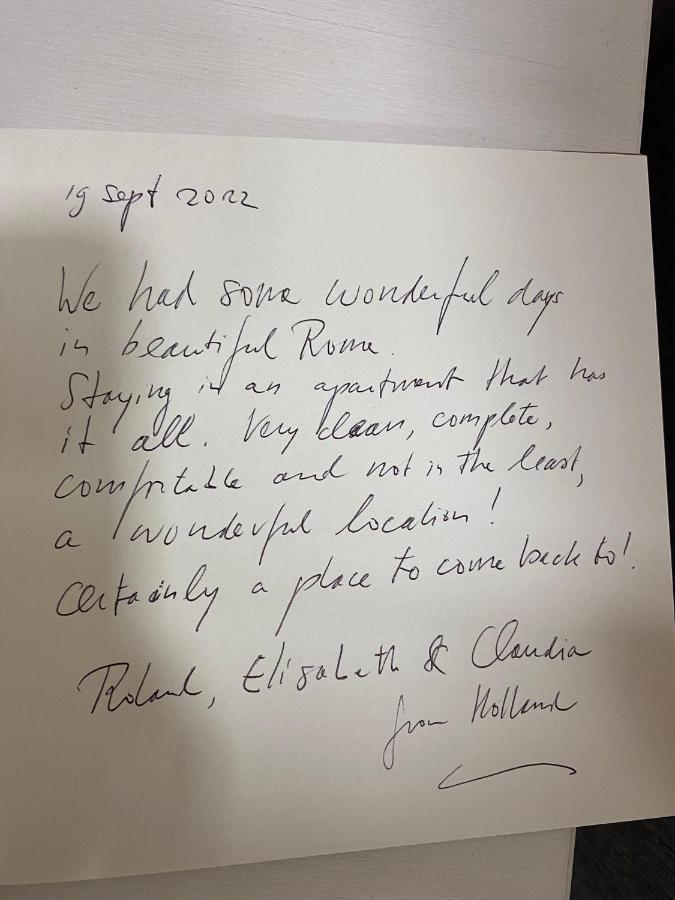 19 sept 2022
We had some wonderful days
in beautiful Rome.
Staying in an apartment that has
it all. Very clean, complete,
comfortable and not in the least,
a wonderful location!
Certainly a place to come back to!
Roland, Elisabeth & Claudia
from Holland